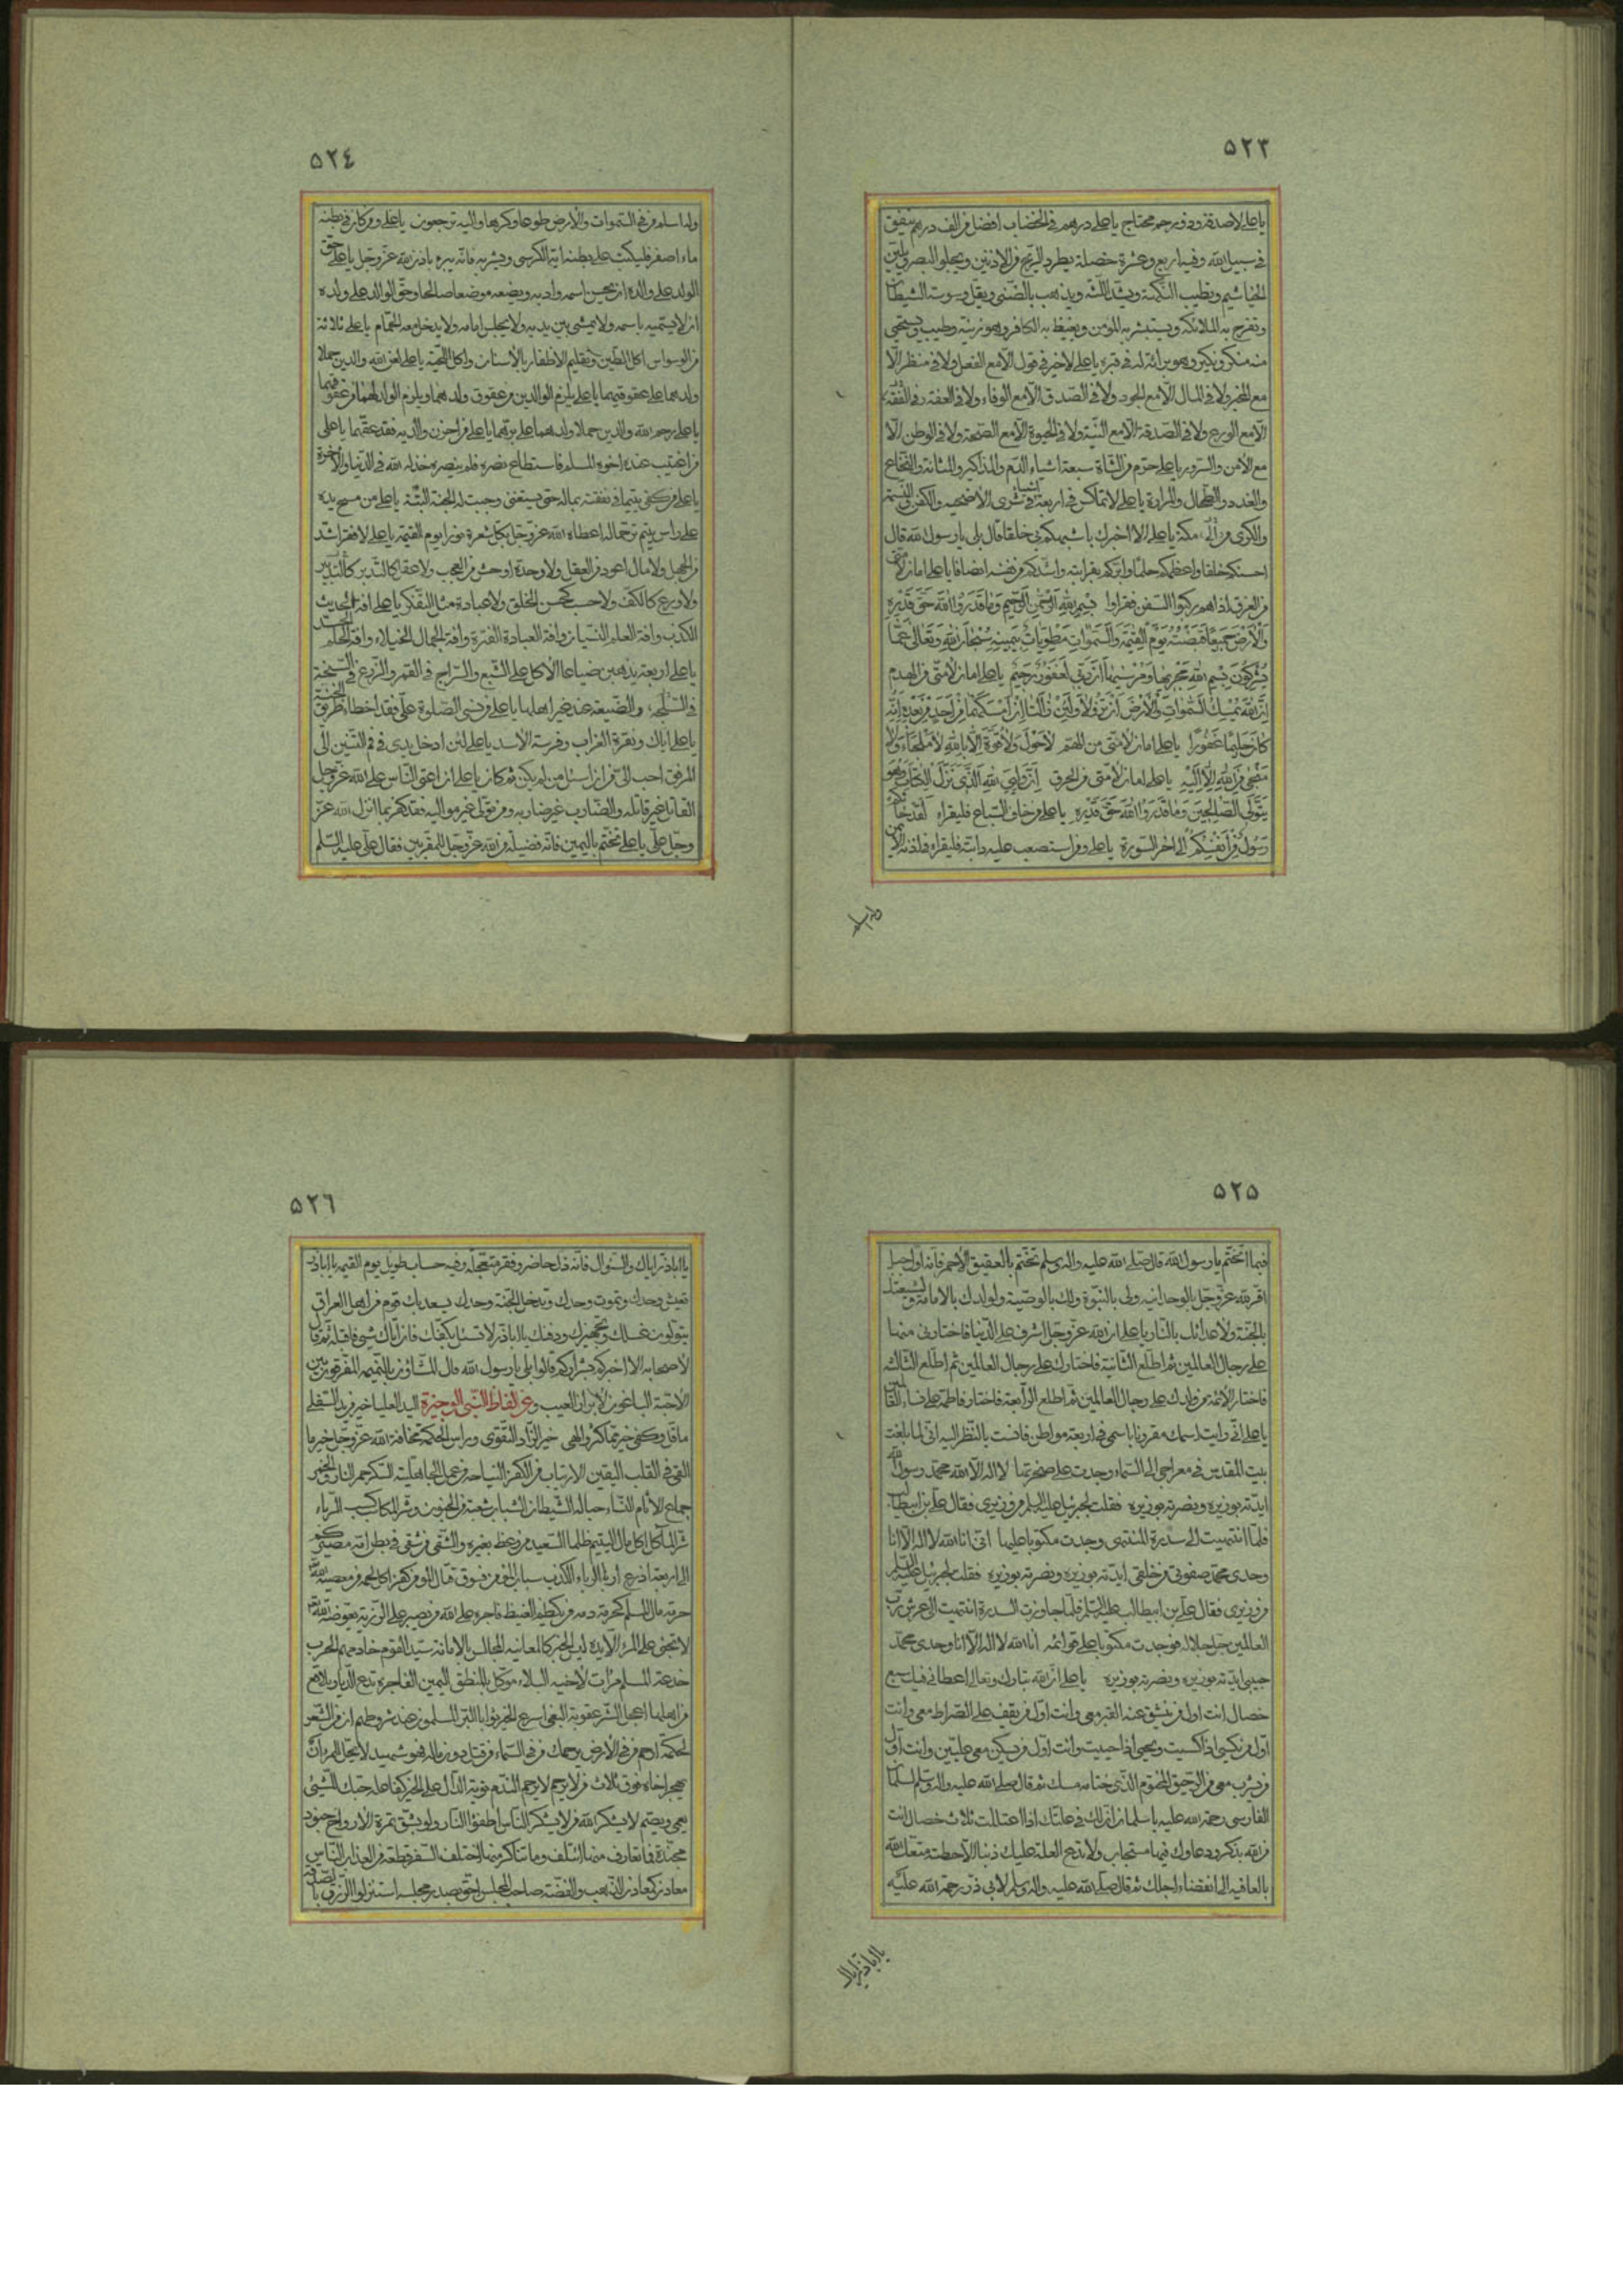 ٥٢٣
يا علي لا صدقة وذو رحم محتاج يا علي درهم في الخضاب افضل من الف درهم ينفق
في سبيل الله وفيه اربع وعشرة خصلة يطرد الريح من الاذنين ويجلو البصر ويلين
الخياشيم ويطيب النكهة ويشد اللثة ويذهب بالضنى ويقل وسوسة الشيطان
وتفرح به الملائكة ويستبشر به المؤمن ويغيظ به الكافر وهو زينة وطيب ويستحيي
منه منكر ونكير وهو براءة له في قبره يا علي لا خير في قول الا مع الفعل ولا في منظر الا
مع المخبر ولا في المال الا مع الجود ولا في الصدق الا مع الوفاء ولا في الفقه
الا مع الورع ولا في الصدقة الا مع النية ولا في الحيوة الا مع الصحة ولا في الوطن الا
مع الامن والسرور يا علي حرم من الشاة سبعة اشياء الدم والمذاكير والمثانة والنخاع
والغدد والطحال والمرارة يا علي لا تماكس في اربعة اشياء في شرى الاضحيه والكفن والنسمة
والكرى الى مكة يا علي الا اخبرك باشبهكم بي خلقا قال بلى يا رسول الله قال
احسنكم خلقا واعظمكم حلما وابركم بقرابته واشدكم من نفسه انصافا يا علي امان لامتي
من الغرق اذا هم ركبوا السفن فقراوا بِسْمِ اللهِ الرَّحْمنِ الرَّحيمِ وَما قَدَرُوا اللهَ حَقَّ قَدْرِهِ
وَالْاَرْضُ جَميعًا قَبْضَتُهُ يَوْمَ الْقِيمَةِ وَالسَّموَاتُ مَطْوِيَّاتٌ بِيَمينِهِ سُبْحانَهُ وَتَعالى عَمَّا
يُشْرِكُونَ بِسْمِ اللهِ مَجْريها وَمُرْسيها اِنَّ رَبّي لَغَفُورٌ رَحيمٌ يا علي امان لامتي من الهدم
اِنَّ اللهَ يُمْسِكُ السَّمواتِ وَالْاَرْضَ اَنْ تَزُولا وَلَئِنْ زالَتا اِنْ اَمْسَكَهُما مِنْ اَحَدٍ مِنْ بَعْدِهِ اِنَّهُ
كانَ حَليمًا غَفُورًا يا علي امان لامتي من الهم لا حَوْلَ وَلا قُوَّةَ اِلّا بِاللهِ لا مَلْجَأَ وَلا
مَنْجى مِنَ اللهِ اِلّا اِلَيْهِ يا علي امان لامتي من الحرق اِنَّ وَلِيِّيَ اللهُ الَّذي نَزَّلَ الْكِتابَ وَهُوَ
يَتَوَلَّى الصّالِحينَ وَما قَدَرُوا اللهَ حَقَّ قَدْرِهِ يا علي من خاف السباع فليقراء لَقَدْ جاءَكُمْ
رَسُولٌ مِنْ اَنْفُسِكُمْ الى اخر السورة يا علي ومن استصعب عليه دابته فليقراء في اذنه الايمن
وله اسلم
٥٢٤
وله اسلم من في السموات والارض طوعا وكرها واليه ترجعون يا علي ومن كان في بطنه
ماء اصفر فليكتب على بطنه اية الكرسي ويشربه فانه يبرء باذن الله عز وجل يا علي حق
الولد على والده ان يحسن اسمه وادبه ويضعه موضعا صالحا وحق الوالد على ولده
ان لا يسميه باسمه ولا يمشي بين يديه ولا يجلس امامه ولا يدخل معه الحمام يا علي ثلاثة
من الوسواس اكل الطين وتقليم الاظفار بالاسنان واكل اللحية يا علي لعن الله والدين حملا
ولدهما على عقوقهما يا علي يلزم الوالدين من عقوق ولدهما ويلزم الولد لهما من عقوقهما
يا علي رحم الله والدين حملا ولدهما على برهما يا علي من احزن والديه فقد عقهما يا علي
من اغتيب عنده اخوه المسلم فاستطاع نصره فلم ينصره خذله الله في الدنيا والاخرة
يا علي من كفى يتيما في نفقته بماله حتى يستغني وجبت له الجنة البتة يا علي من مسح يده
على راس يتيم ترحما له اعطاه الله عز وجل بكل شعرة نورا يوم القيمة يا علي لا فقر اشد
من الجهل ولا مال اعود من العقل ولا وحدة اوحش من العجب ولا عقل كالتدبير
ولا ورع كالكف ولا حسب كحسن الخلق ولا عبادة مثل التفكر يا علي افة الحديث
الكذب وافة العلم النسيان وافة العبادة الفترة وافة الجمال الخيلاء وافة الحلم الحسد
يا علي اربعة يذهبن ضياعا الاكل على الشبع والسراج في القمر والزرع في السبخة
والصنيعة عند غير اهلها يا علي من نسي الصلوة علي فقد اخطاء طريق الجنة
يا علي اياك ونقرة الغراب وفرسة الاسد يا علي لئن ادخل يدي في فم التنين الى
المرفق احب الي من ان اسئل من لم يكن ثم كان يا علي ان اعتى الناس على الله عز وجل
القاتل غير قاتله والضارب غير ضاربه ومن تولى غير مواليه فقد كفر بما انزل الله عز
وجل علي يا علي تختم باليمين فانه فضيلة من الله عز وجل للمقربين فقال علي عليه السلم
٥٢٥
فيما اتختم يا رسول الله قال صلى الله عليه واله وسلم تختم بالعقيق الاحمر فانه اول جبل
اقر لله عز وجل بالوحدانية ولي بالنبوة ولك بالوصية ولولدك بالامامة ولشيعتك
بالجنة ولاعدائك بالنار يا علي ان الله عز وجل اشرف على الدنيا فاختارني منها
على رجال العالمين ثم اطلع الثانية فاختارك على رجال العالمين ثم اطلع الثالثة
فاختار الائمة من ولدك على رجال العالمين ثم اطلع الرابعة فاختار فاطمة على نساء العالمين
يا علي اني رايت اسمك مقرونا باسمي في اربعة مواطن فانست بالنظر اليه اني لما بلغت
بيت المقدس في معراجي الى السماء وجدت على صخرتها لا اله الا الله محمد رسول الله
ايدته بوزيره ونصرته بوزيره فقلت لجبرئيل عليه السلم من وزيري فقال علي بن ابيطالب
فلما انتهيت الى سدرة المنتهى وجدت مكتوبا عليها اني انا الله لا اله الا انا
وحدي محمد صفوتي من خلقي ايدته بوزيره ونصرته بوزيره فقلت لجبرئيل عليه السلم
من وزيري فقال علي بن ابيطالب عليه السلم فلما جاوزت السدرة انتهيت الى عرش رب
العالمين جل جلاله فوجدت مكتوبا على قوائمه انا الله لا اله الا انا وحدي محمد
حبيبي ايدته بوزيره ونصرته بوزيره يا علي ان الله تبارك وتعالى اعطاني فيك سبع
خصال انت اول من ينشق عنه القبر معي وانت اول من يقف على الصراط معي وانت
اول من يكسى اذا كسيت ويحيى اذا حييت وانت اول من يسكن معي عليين وانت اول
من يشرب معي من الرحيق المختوم الذي ختامه مسك ثم قال صلى الله عليه واله وسلم لسلمان
الفارسي رحمة الله عليه يا سلمان ان لك في علتك اذا اعتللت ثلاث خصال انت
من الله بذكر ودعاوك فيها مستجاب ولا تدع العلة عليك ذنبا الا حطته متعك الله
بالعافية الى انقضاء اجلك ثم قال صلى الله عليه واله وسلم لابي ذر رحمة الله عليه
يا اباذر اياك
٥٢٦
يا اباذر اياك والسؤال فانه ذل حاضر وفقر متعجله وفيه حساب طويل يوم القيمة يا اباذر
تعيش وحدك وتموت وحدك وتدخل الجنة وحدك يسعد بك قوم من اهل العراق
يتولون غسلك وتجهيزك ودفنك يا اباذر لا تسئل بكفك فان اتاك شيء فاقبله ثم قال
لاصحابه الا اخبركم بشراركم قالوا بلى يا رسول الله قال المشاؤن بالنميمة المفرقون بين
الاحبة الباغون لابراء العيب ومن الفاظ النبي الوجيزة اليد العليا خير من يد السفلى
ما قل وكفى خير مما كثر والهى خير الزاد التقوى وراس الحكمة مخافة الله عز وجل خير ما
القي في القلب اليقين الارتياب من الكفر النياحة من عمل الجاهلية السكر جمر النار والخمر
جماع الاثام النساء حبالة الشيطان الشباب شعبة من الجنون وشر المكاسب كسب الرباء
شر الماكل اكل مال اليتيم ظلما السعيد من وعظ بغيره والشقي من شقي في بطن امه مصيركم
الى اربعة اذرع اربا الرباء الكذب سباب المؤمن فسوق قتال المؤمن كفر اكل لحمه من معصية الله
حرمة مال المسلم كحرمة دمه من يكظم الغيظ فاجره على الله من يصبر على الرزية يعوضه الله
لا تجني على المرء الا يده ليس الخبر كالمعاينة المجالس بالامانة سيد القوم خادمهم الحرب
خدعة المسلم مرات لاخيه البلاء موكل بالمنطق اليمين الفاجرة تدع الديار بلاقع
من اهلها اعجل الشر عقوبة البغي اسرع الخير ثوابا البر المسلمون عند شروطهم ان من الشعر
لحكمة ارحم من في الارض يرحمك من في السماء من قتل دون ماله فهو شهيد لا يحل لمؤمن ان
يهجر اخاه فوق ثلاث من لا يرحم لا يرحم الندم توبة الدال على الخير كفاعله حبك للشيء
يعمي ويصم لا يشكر الله من لا يشكر الناس اطفؤا النار ولو بشق تمرة الارواح جنود
مجندة فما تعارف منها ائتلف وما تناكر منها اختلف السفر قطعة من العذاب الناس
معادن كمعادن الذهب والفضة صاحب المجلس احق بصدر مجلسه استنزلوا الرزق بالصدقة